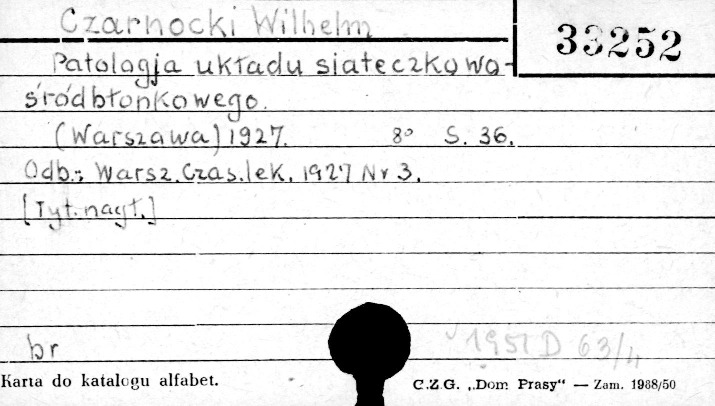 Czarnocki Wilhelm
33252
Patologja układu siateczkowo-
śródbłonkowego.
(Warszawa) 1927. 8° S. 36.
Odb.: Warsz. Czas. lek. 1927 Nr 3.
[Tyt. nagł.]
br
1951 D 63/4
Karta do katalogu alfabet.
C.Z.G. „Dom Prasy" — Zam. 1988/50